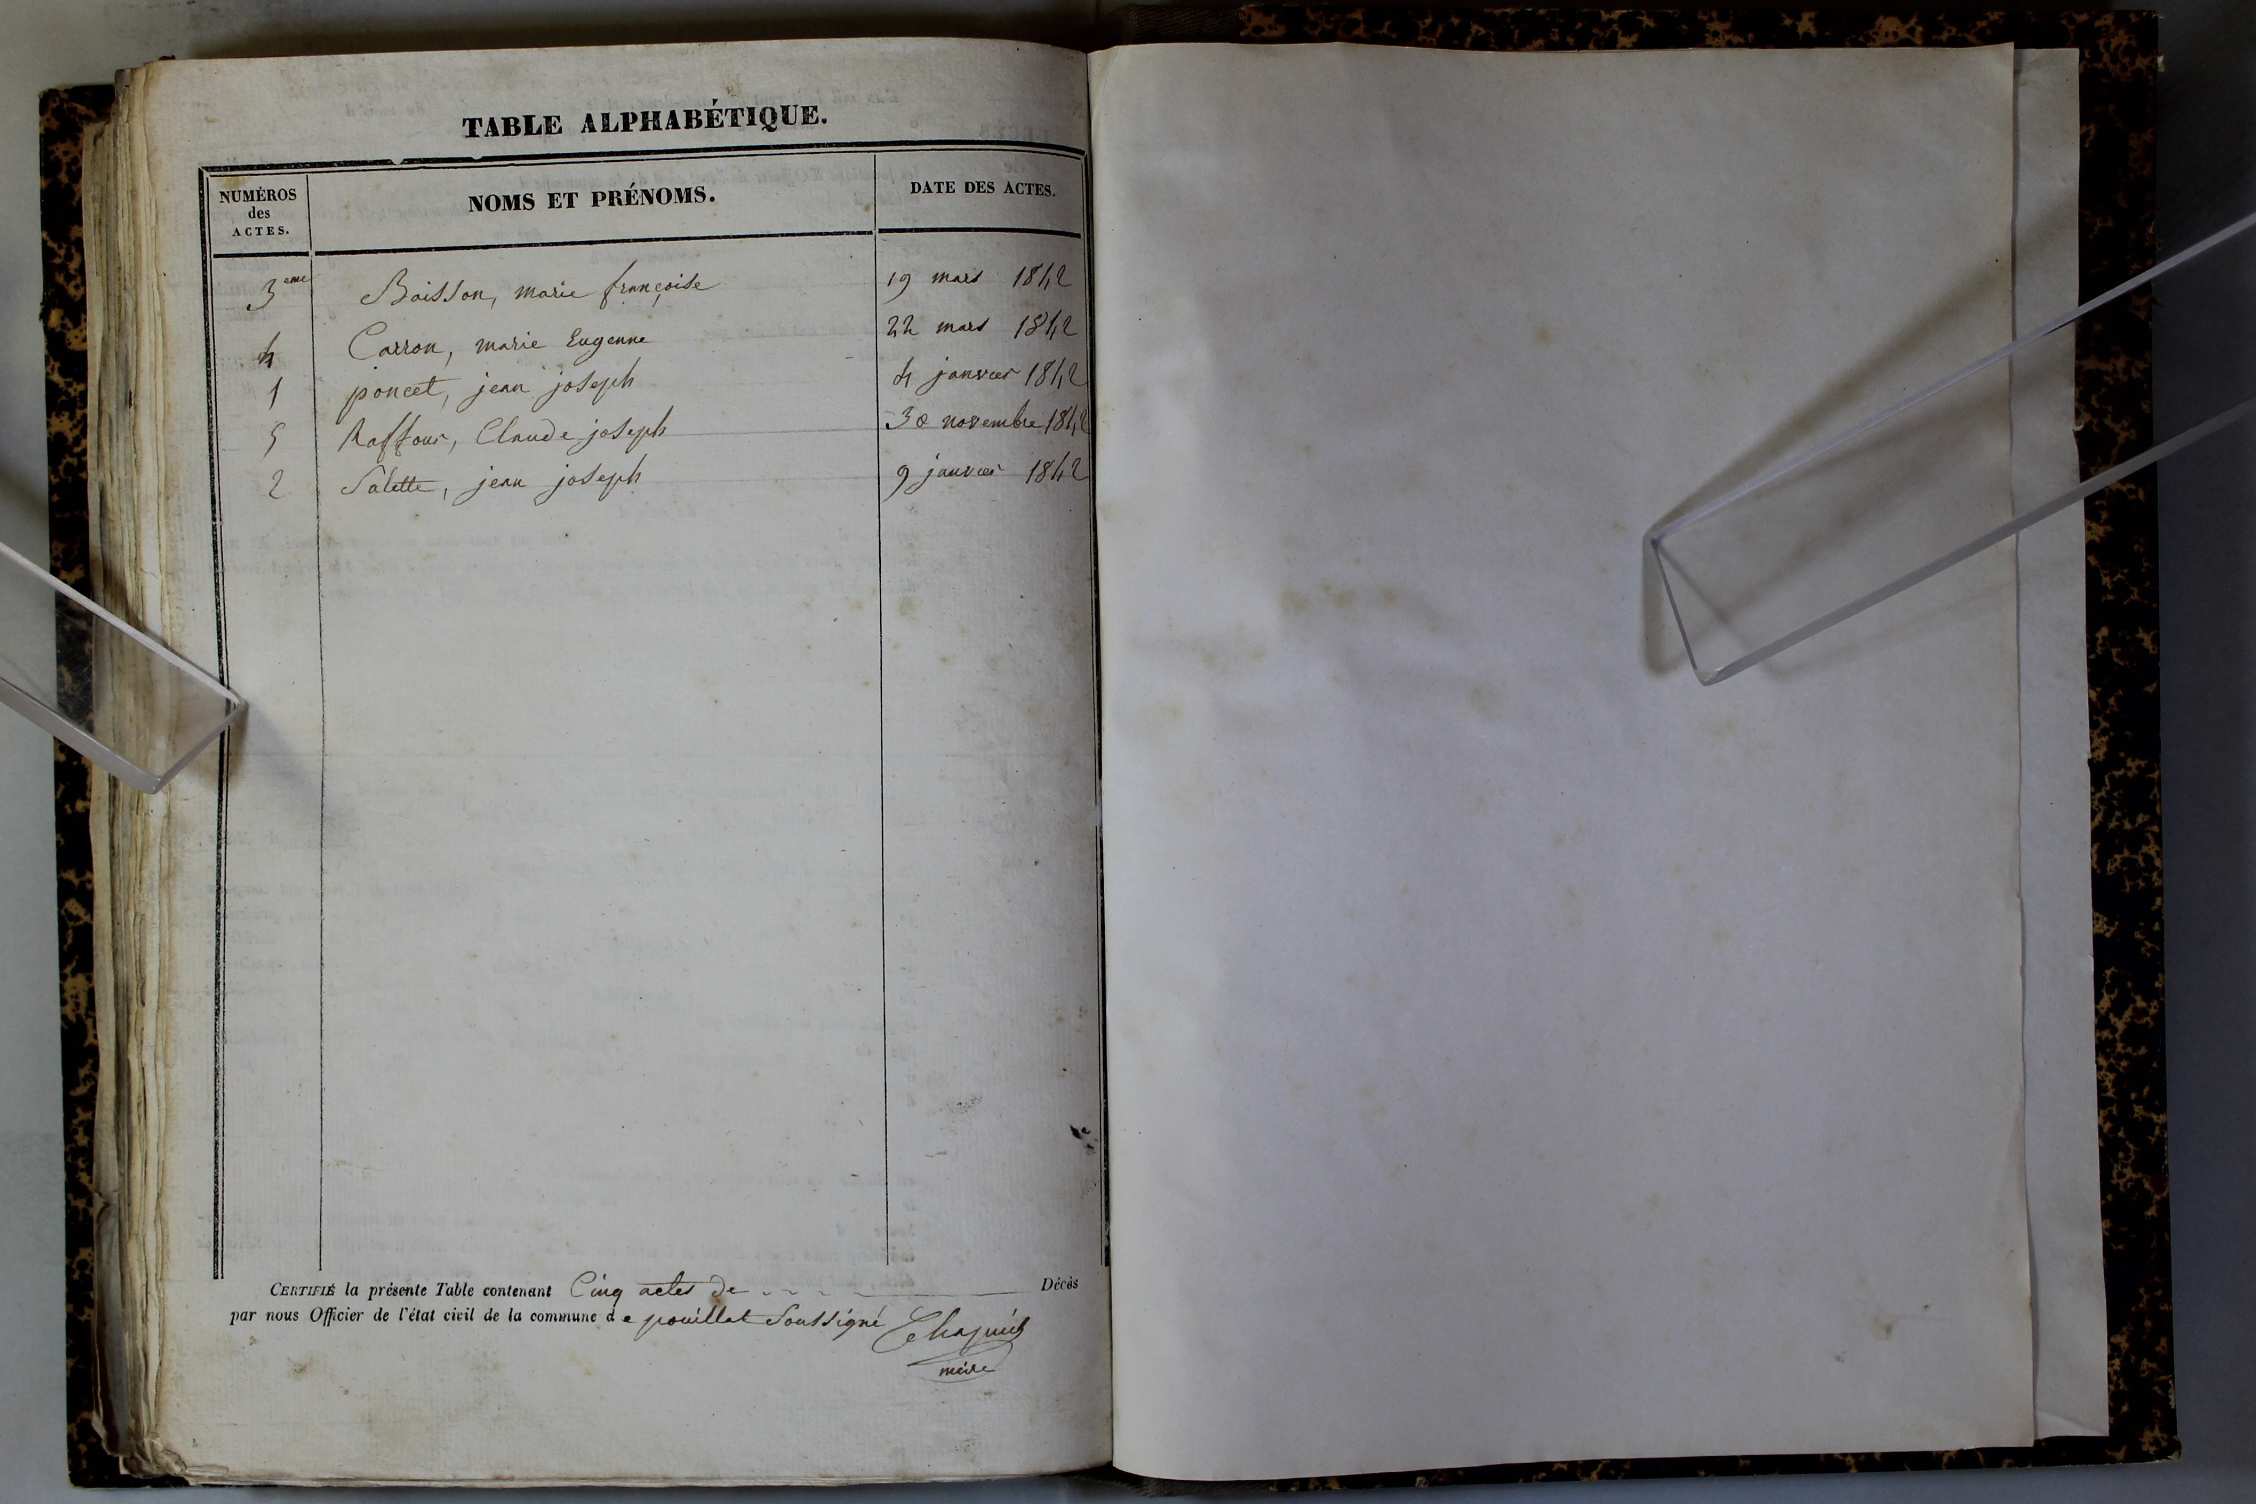 TABLE ALPHABÉTIQUE.
NUMÉROS des ACTES. NOMS ET PRÉNOMS. DATE DES ACTES.
3eme Boisson, marie françoise 19 mars 1842
4 Carron, marie Eugenne 22 mars 1842
1 poncet, jean joseph 4 janvier 1842
5 Raffour, Claude joseph 30 novembre 1842
2 Salette, jean joseph 9 janvier 1842
CERTIFIÉ la présente Table contenant Cinq actes de Décès
par nous Officier de l'état civil de la commune de pouillat soussigné